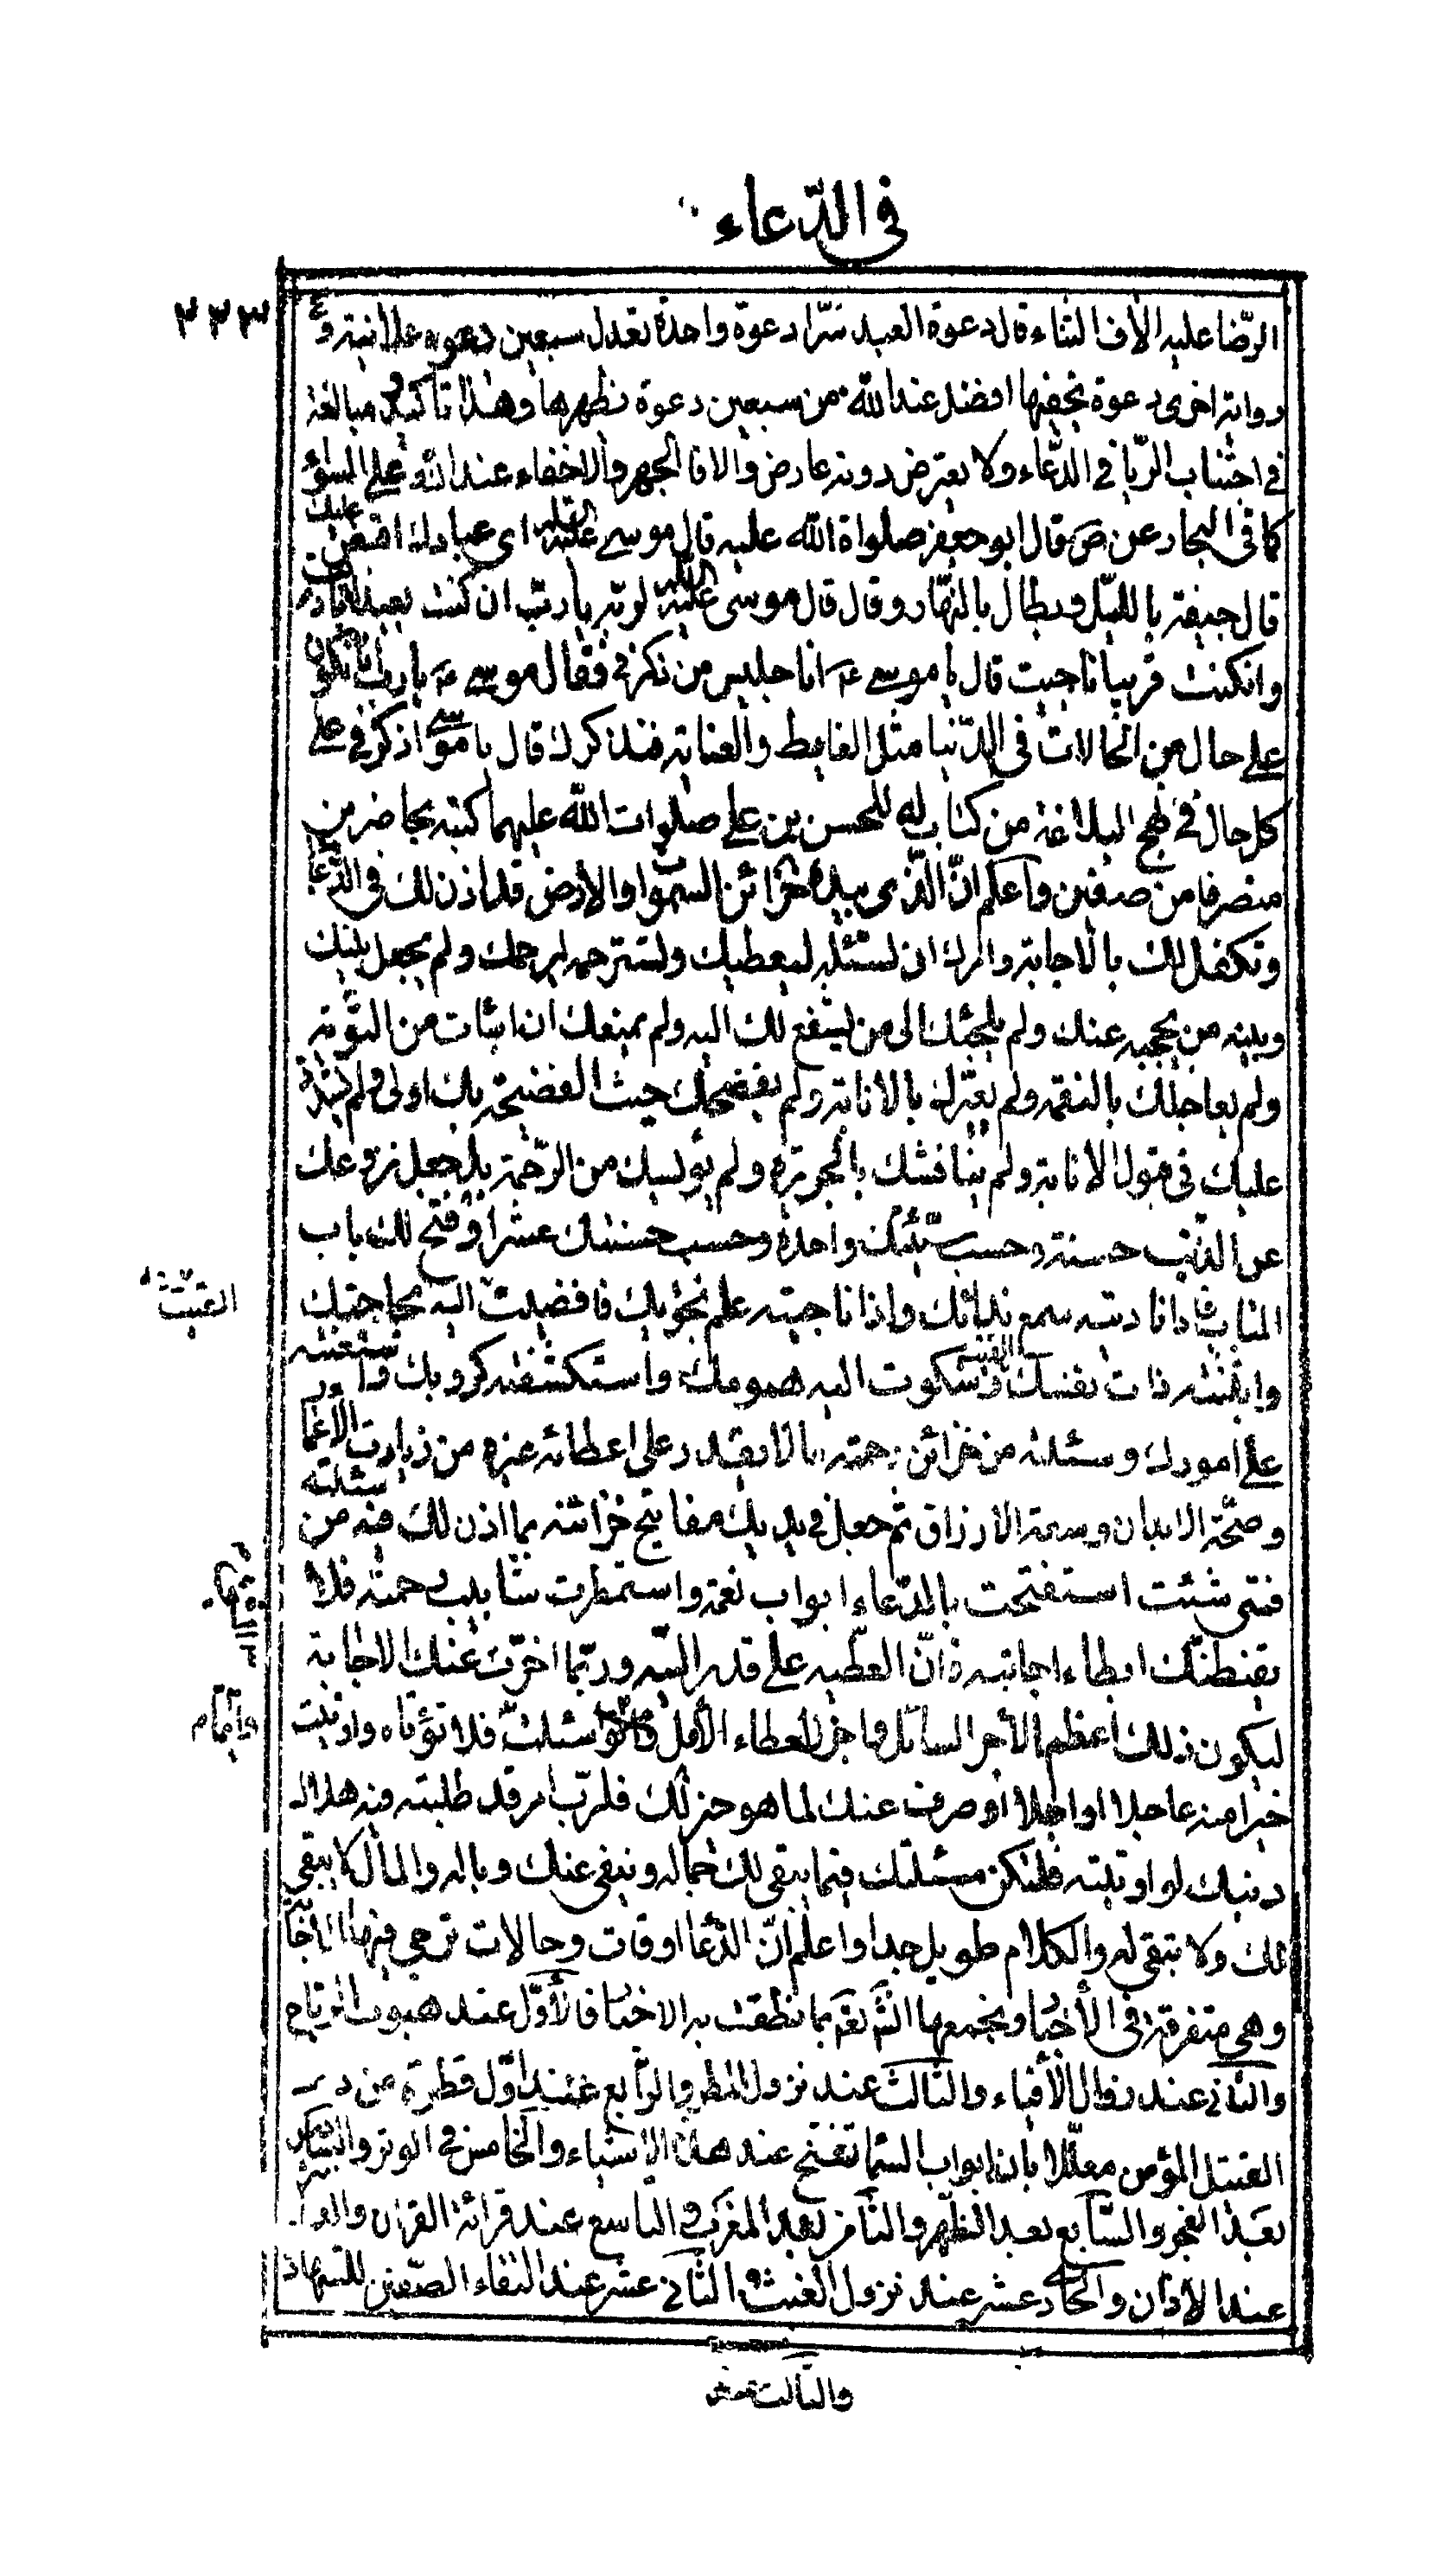 في الدّعاء
٣٣٣
الرّضا عليه الاف الثناء قال دعوة العبد سرّا دعوة واحدة تعدل سبعين دعوة علانية و في
رواية اخرى دعوة يخفيها افضل عند الله من سبعين دعوة يظهرها وهذا تاكيد و مبالغة
في اجتناب الرّيا في الدّعاء ولا يعترض دونه عارض والا فالجهر والاخفاء عند الله على السواء
كما في البحار عن ص قال ابو جعفر صلواة الله عليه قال موسى عليه السلام اى عبادك ابغض عليك
قال جيفة بالليل وبطال بالنهار وقال قال موسى عليه السلام لربه يا رب ان كنت بعيدا ناديت
وان كنت قريبا ناجيت قال يا موسى ع انا جليس من ذكرني فقال موسى ع يا رب انا نكون
على حال من الحالات في الدّنيا مثل الغايط والجنابة فنذكرك قال يا موسى اذكرني على
كل حال في نهج البلاغة من كتاب له للحسن بن على صلوات الله عليهما كتبه بحاضرين
منصرفا من صفين واعلم انّ الّذى بيده خزائن السموات والارض قد اذن لك في الدّعا
وتكفل لك بالاجابة وامرك ان تسئله ليعطيك وتسترحمه ليرحمك ولم يجعل بينك
وبينه من يحجبه عنك ولم يلجئك الى من يشفع لك اليه ولم يمنعك ان اسئات من التّوبة
ولم يعاجلك بالنقمة ولم يعيّرك بالانابة ولم يفضحك حيث الفضيحة بك اولى ولم يشدّد
عليك في قبول الانابة ولم يناقشك بالجريرة ولم يؤيسك من الرّحمة بل جعل نزوعك
عن الذّنب حسنة وحسب سيّئتك واحدة وحسب حسنتك عشرا وفتح لك باب
المتاب فاذا ناديته سمع ندائك واذا ناجيته علم نجويك فافضيت اليه بحاجتك
وابثثته ذات نفسك وشكوت اليه همومك واستكشفته كروبك واستعنته
على امورك وسئلته من خزائن رحمته ما لا يقدر على اعطائه غيره من زيادة الاعمار
وصحّة الابدان وسعة الارزاق ثم جعل في يديك مفاتيح خزائنه بما اذن لك فيه من مسئلته
فمتى شئت استفتحت بالدّعاء ابواب نعمه واستمطرت شآبيب رحمته فلا
يقنطنّك ابطاء اجابته فانّ العطيه على قدر النيّه وربّما اخرّت عنك الاجابة
ليكون ذلك اعظم لاجر السائل واجزل لعطاء الامل وربما سئلت فلا تؤتاه واوتيت
خيرا منه عاجلا او اجلا او صرف عنك لما هو خير لك فلربّ امر قد طلبته فيه هلاك
دينك لو اوتيته فلتكن مسئلتك فيما يبقى لك جماله وينفى عنك وباله والمال لا يبقى
لك ولا تبقى له والكلام طويل جدا واعلم انّ للدّعا اوقات وحالات ترجى فيها الاجابة
وهى متفرقة في الاخبار ويجمعها اثنى عشر بما نطقت به الاخبار فالاوّل عند هبوب الرياح
والثاني عند زوال الافياء والثالث عند نزول المطر والرّابع عند اوّل قطرة من دم
القتيل المؤمن معلّلا بان ابواب السّما تفتح عند هذه الاشياء والخامس في الوتر والسادس
بعد الفجر والسّابع بعد الظهر والثامن بعد المغرب والتاسع عند قرائة القران والعاشر
عند الاذان والحادى عشر عند نزول الغيث والثاني عشر عند التقاء الصّفين للشهادة
والثالث عشر